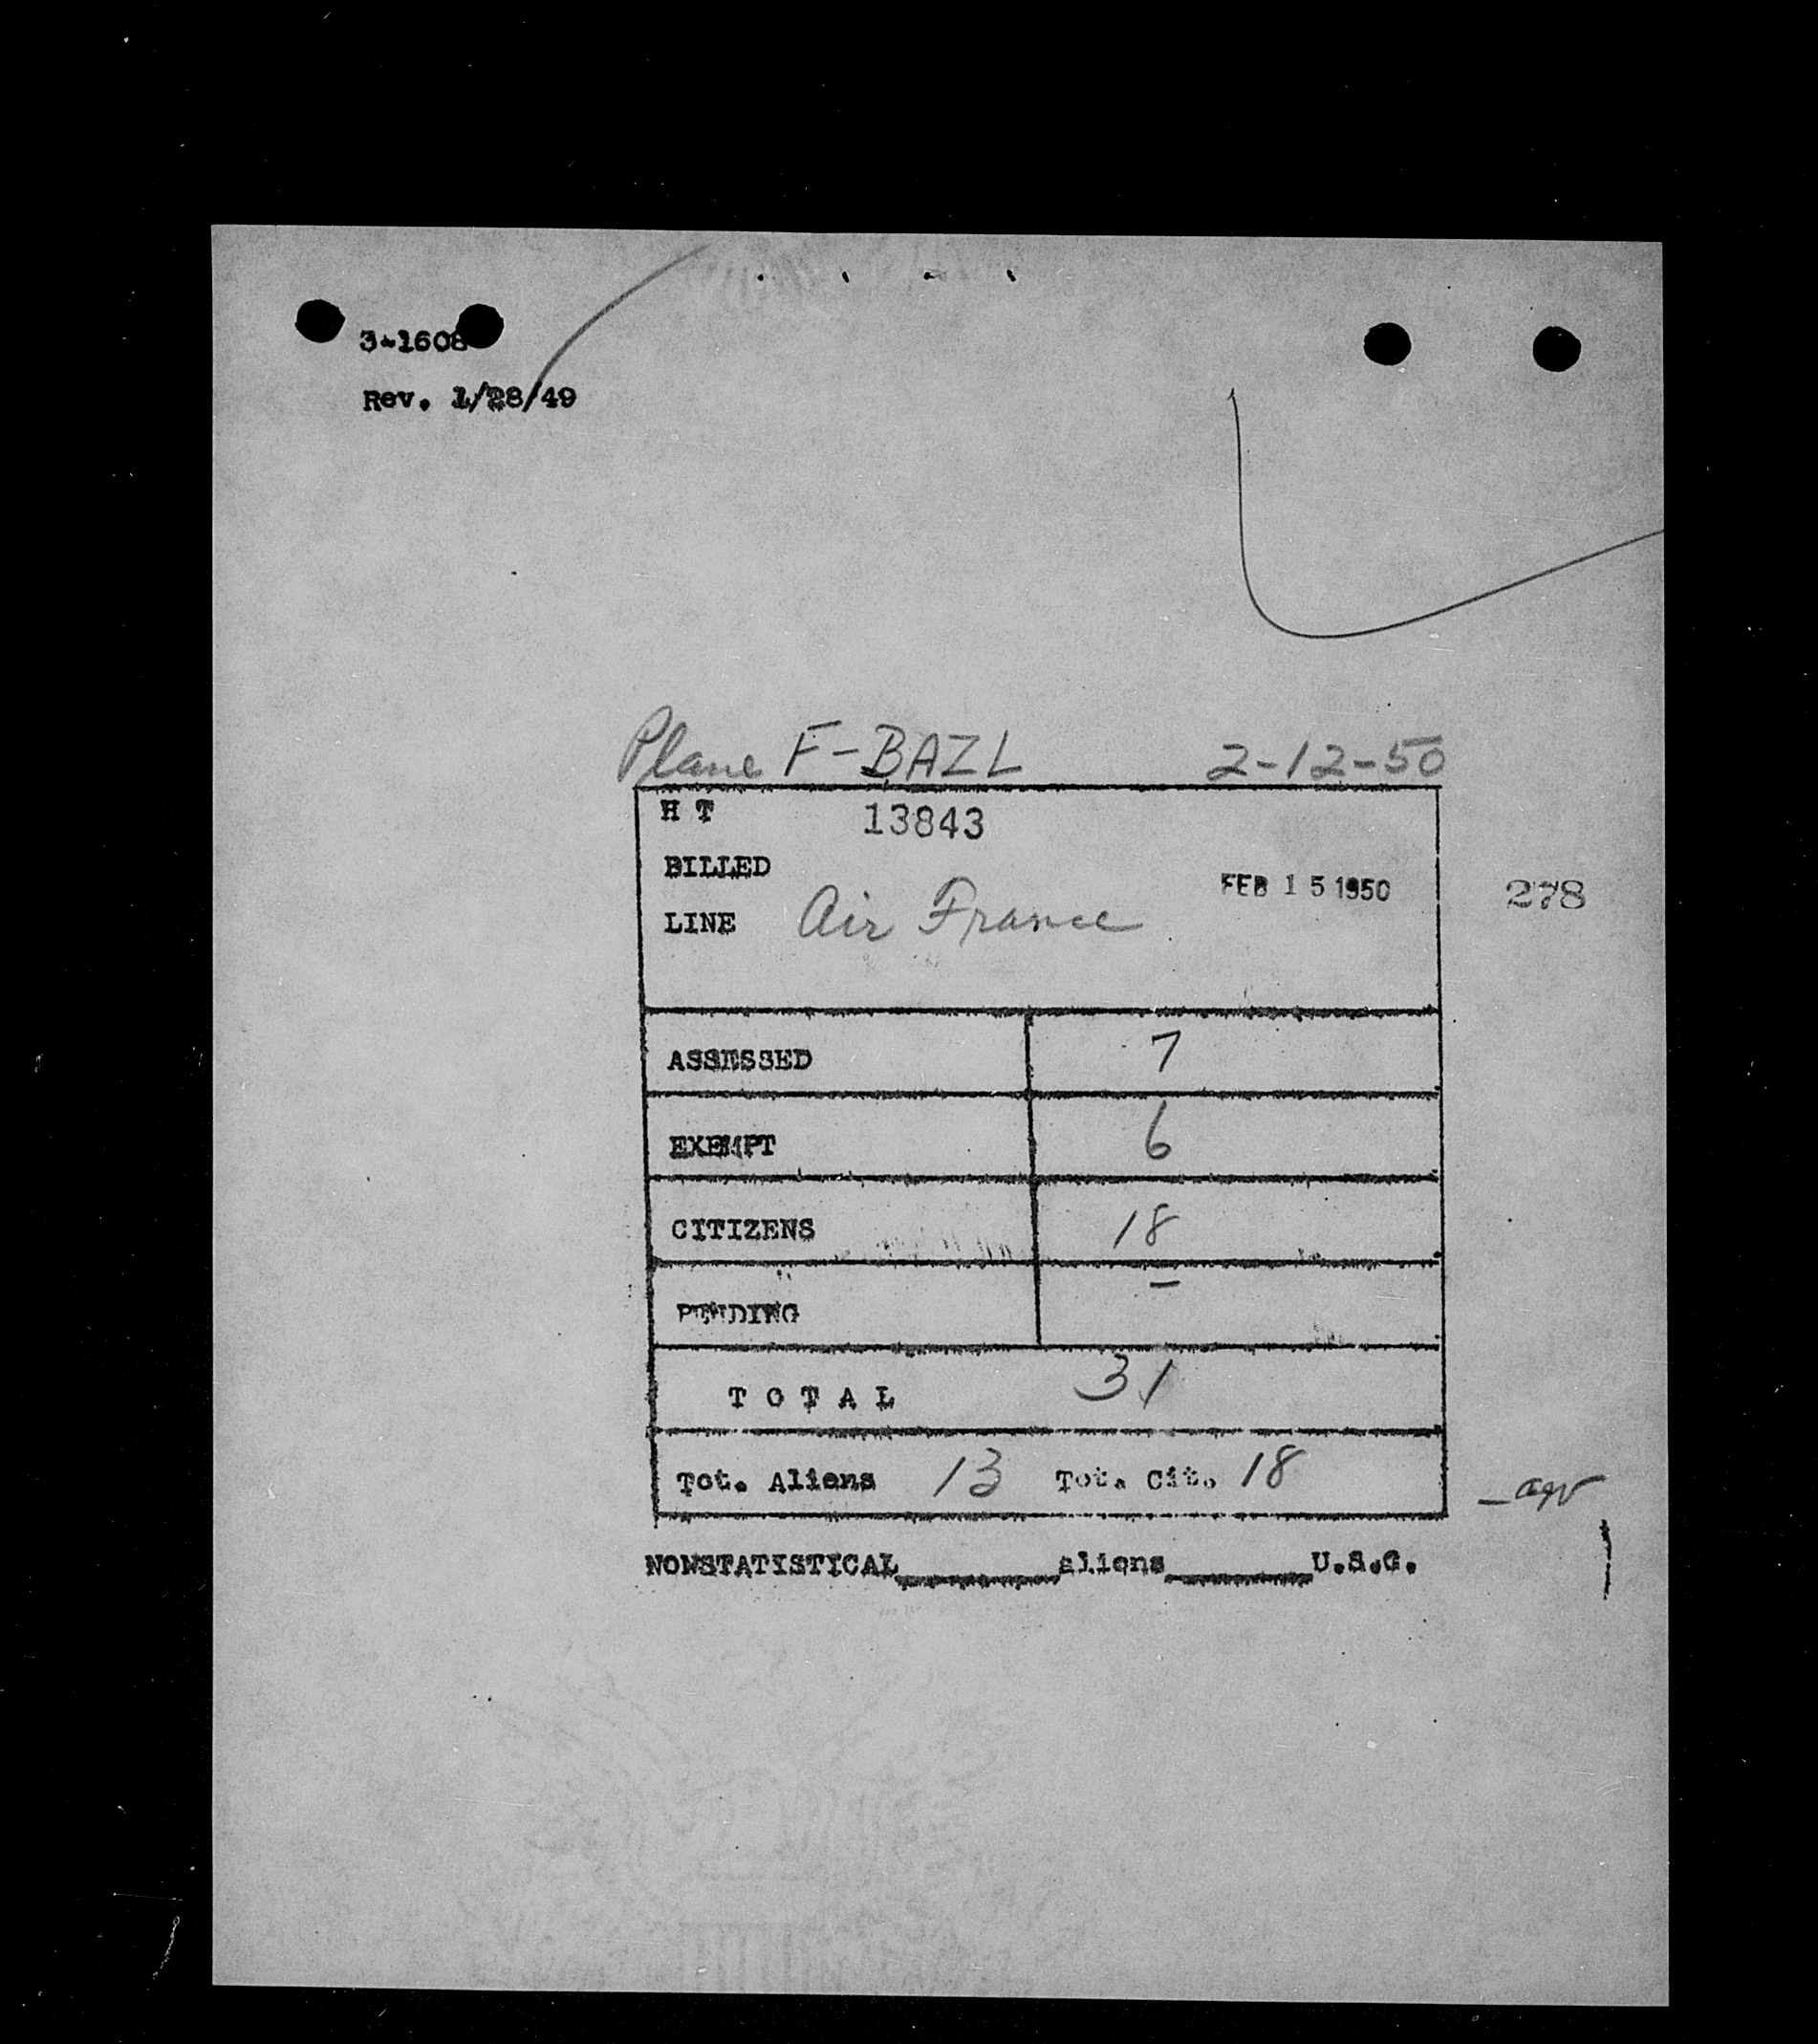 3-1608
Rev. 1/28/49
Plane F-BAZL 2-12-50
H T 13843
BILLED
FEB 15 1950 278
LINE Air France
ASSESSED 7
EXEMPT 6
CITIZENS 18
PENDING –
T O T A L 31
Tot. Aliens 13 Tot. Cit. 18
NONSTATISTICAL________aliens________U.S.C.